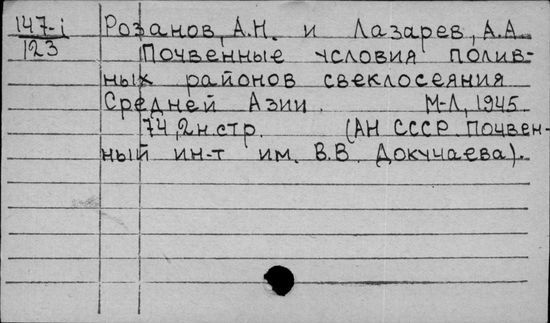 147-i
123
Розанов, А.Н. и Лазарев, А.А.
Почвенные условия полив-
ных районов свеклосеяния
Средней Азии. М-Л, 1945
74, 2н.стр. (АН СССР Почвен-
ный ин-т им. В.В. Докучаева).